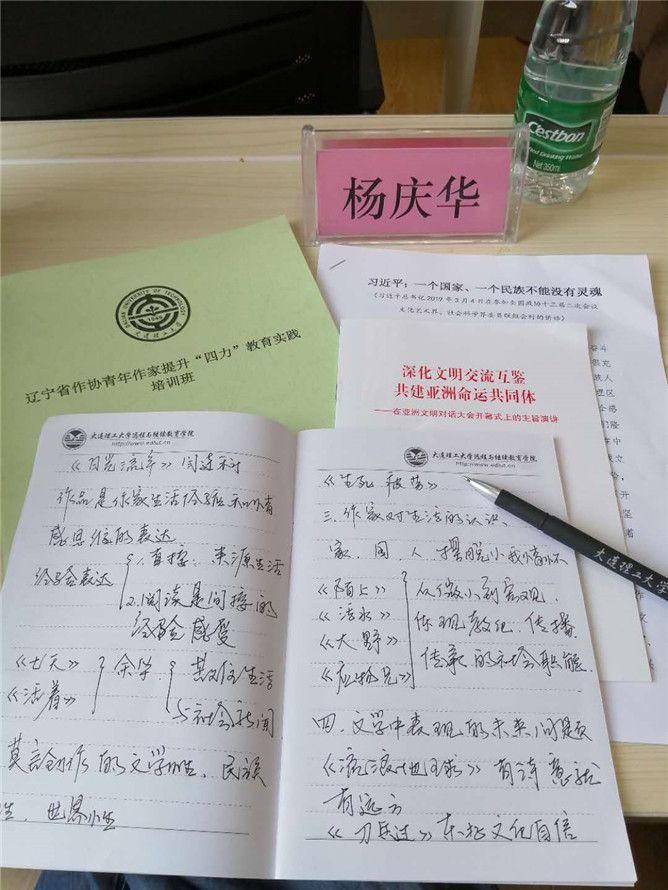 Cestbon
Food Drinking Water
Net 350ml
杨庆华
DALIAN UNIVERSITY OF TECHNOLOGY
1949
大连理工大学
辽宁省作协青年作家提升“四力”教育实践
培训班
习近平：一个国家、一个民族不能没有灵魂
《习近平总书记2019年3月4日在参加全国政协十三届二次会议
文化艺术界、社会科学界委员联组会时的讲话》
深化文明交流互鉴
共建亚洲命运共同体
——在亚洲文明对话大会开幕式上的主旨演讲
大连理工大学远程与继续教育学院
http://www.edlut.cn
《日光流年》阎连科
作品是作家生活经验和情
感思维的表达
经验表达
1.直接、来源生活
2.阅读是间接的
经验感受
《七天》
《活着》
余华
其双面生活
与社会新闻
莫言创作的文学性、民族
性、世界性
大连理工大学远程与继续教育学院
http://www.edlut.cn
《生死疲劳》
三.作家对生活的认识、
家、国、人 摆脱小我情怀
《陌上》
《活水》
《大野》
《应物兄》
从微小到宏观、
体现教化、传播、
传承的社会职能.
四.文学中表现的未来问题
《流浪地球》有诗意就
有远方
《刀兵过》东北文化自信
大连理工大学